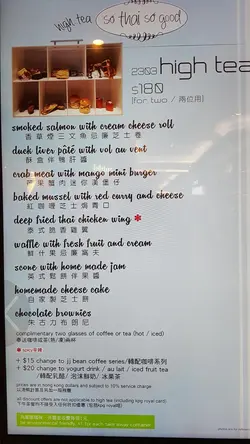 high tea so thai so good
2303 high tea
$180
[for two / 兩位用]
smoked salmon with cream cheese roll
香草煙三文魚忌廉芝士卷
duck liver pâté with vol au vent
酥盒伴鴨肝醬
crab meat with mango mini burger
芒果蟹肉迷你漢堡仔
baked mussel with red curry and cheese
紅咖喱芝士焗青口
deep fried thai chicken wing *
泰式脆香雞翼
waffle with fresh fruit and cream
鮮什果忌廉窩夫
scone with home made jam
英式鬆餅伴果醬
homemade cheese cake
自家製芝士餅
chocolate brownies
朱古力布朗尼
complimentary two glasses of coffee or tea (hot / iced)
奉送咖啡或茶(熱/凍)兩杯
* spicy辛辣
+ $15 change to jj bean coffee series/轉配咖啡系列
+ $20 change to yogurt drink / au lait / iced fruit tea
/轉配乳酪/泡沫鮮奶/冰果茶
prices are in hong kong dollars and subject to 10% service charge
以港幣計算及另加一服務費
all discount offers are not applicable to high tea (including kpg royal card)